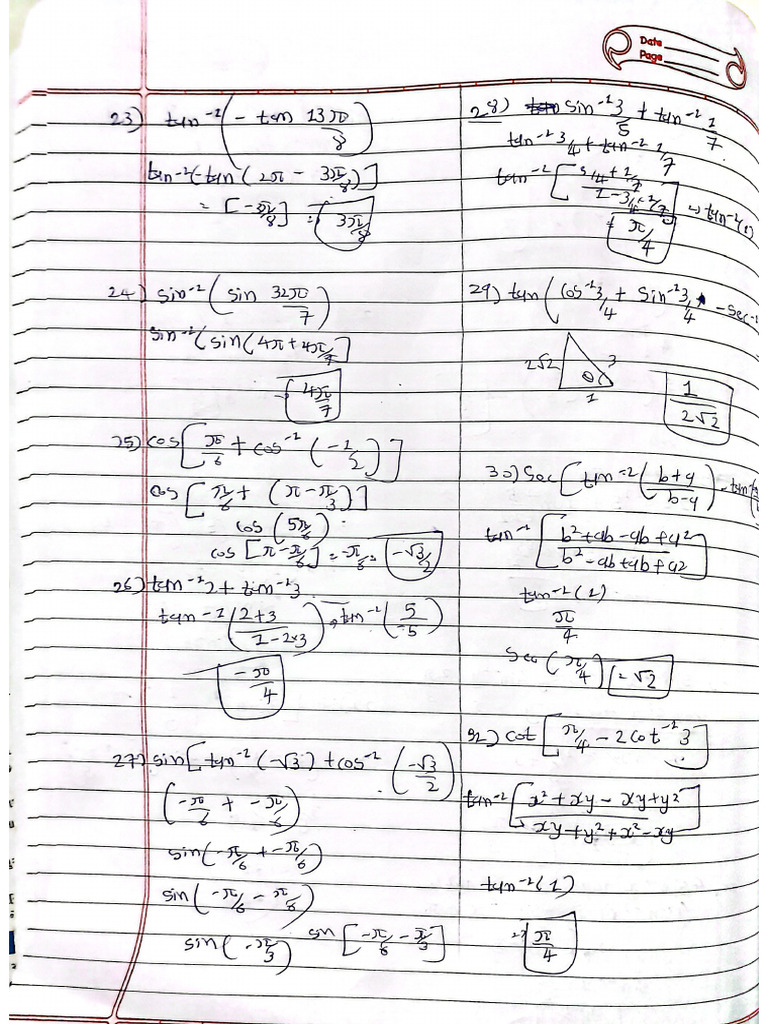 Date
Page
23) tan⁻¹(- tan 13π/8)
tan⁻¹(-tan(2π - 3π/8)]
= [-3π/8] = 3π/8
24) sin⁻¹(sin 32π/7)
sin⁻¹(sin(4π+4π/7]
→ 4π/7
25) cos[π/6 + cos⁻¹(-1/2)]
cos[π/6 + (π-π/3)]
cos(5π/6)
cos[π-π/6] = -π/6 = -√3/2
26) tan⁻¹2 + tan⁻¹3
tan⁻¹(2+3/1-2×3) → tan⁻¹(5/-5)
-π/4
27) sin[tan⁻¹(-√3) + cos⁻¹(-√3/2)
(-π/6 + -π/6)
sin(-π/6 + -π/6)
sin(-π/6 - π/6)
sin(-π/3) sin[-π/6 - π/3]
28) sin⁻¹3/5 + tan⁻¹1/7
tan⁻¹3/4 + tan⁻¹1/7
tan⁻¹[3/4+1/7 / 1-3/4×1/7] → tan⁻¹(1)
= π/4
29) tan(cos⁻¹3/4 + sin⁻¹3/4 - sec⁻¹
2√2 3
θ
1
1/2√2
30) sec[tan⁻¹(b+a/b-a) - tan⁻¹
tan⁻¹[b²+ab-ab+a²/b²-ab+ab+a²]
tan⁻¹(1)
π/4
sec(π/4) = √2
32) cot[π/4 - 2cot⁻¹3]
tan⁻¹[x²+xy-xy+y²/xy+y²+x²-xy]
tan⁻¹(1)
→ π/4